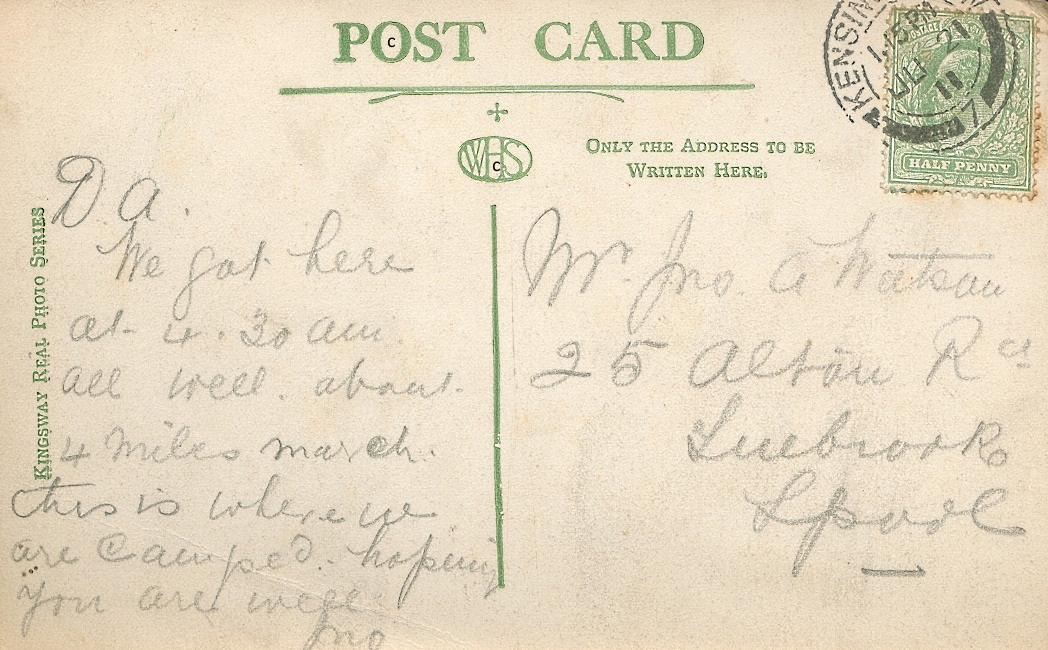 POST CARD
WHS
ONLY THE ADDRESS TO BE
WRITTEN HERE.
KINGSWAY REAL PHOTO SERIES
HALF PENNY
KENSIN
1.15 PM
21
11
7
D A.
We got here
at 4.30 am.
all well. about
4 Miles march.
this is where we
are Camped. hoping
you are well
Jno
Mr Jno A Watson
25 Alton Rd
Tuebrook
Lpool